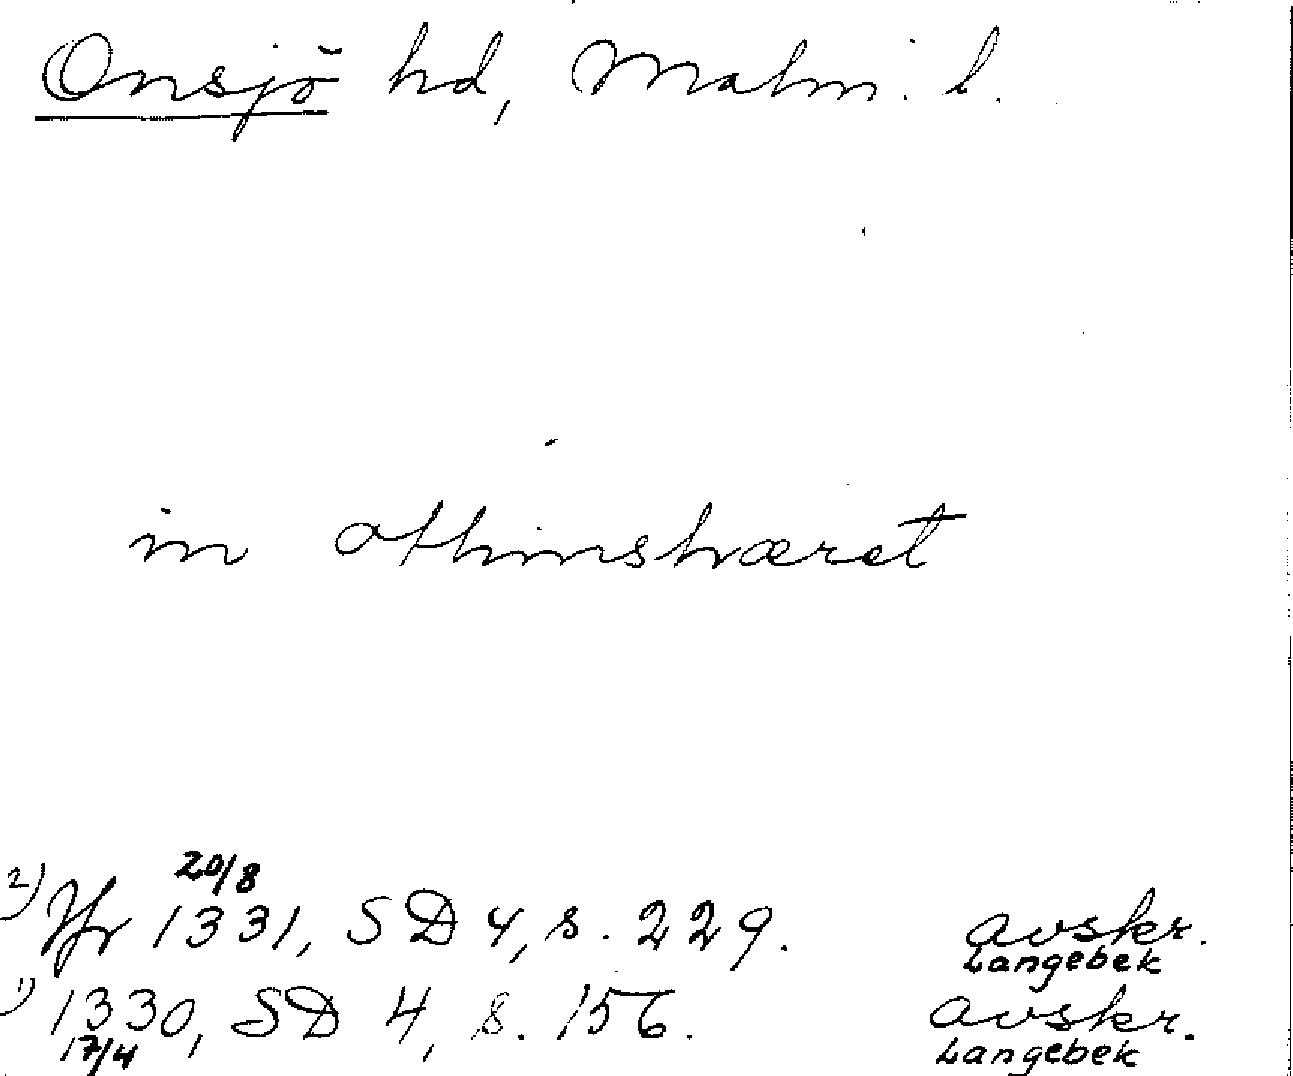 Onsjö hd, Malm. l.
in othinshæret
2) Yfr 20/8 1331, SD 4, s. 229. avskr. Langebek
1) 1330, 17/4 SD 4, s. 156. avskr. Langebek